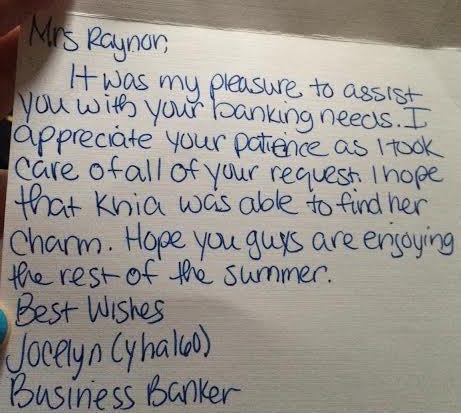 Mrs Raynor,
It was my pleasure to assist
you with your banking needs. I
appreciate your patience as I took
care of all of your request. I hope
that Knia was able to find her
charm. Hope you guys are enjoying
the rest of the summer.
Best Wishes
Jocelyn (yhal60)
Business Banker